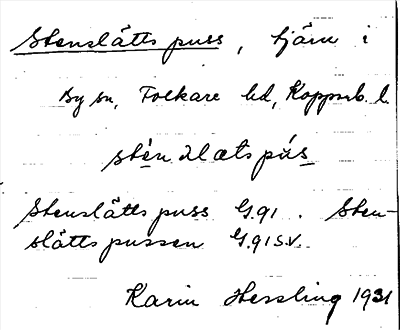 Stenslätts puss, tjärn i
By sn, Folkare hd, Kopparb. l.
stèn slæts pús
Stenslätts puss G.91. Sten-
slättspussen G.91 S.V.
Karin Hessling 1931